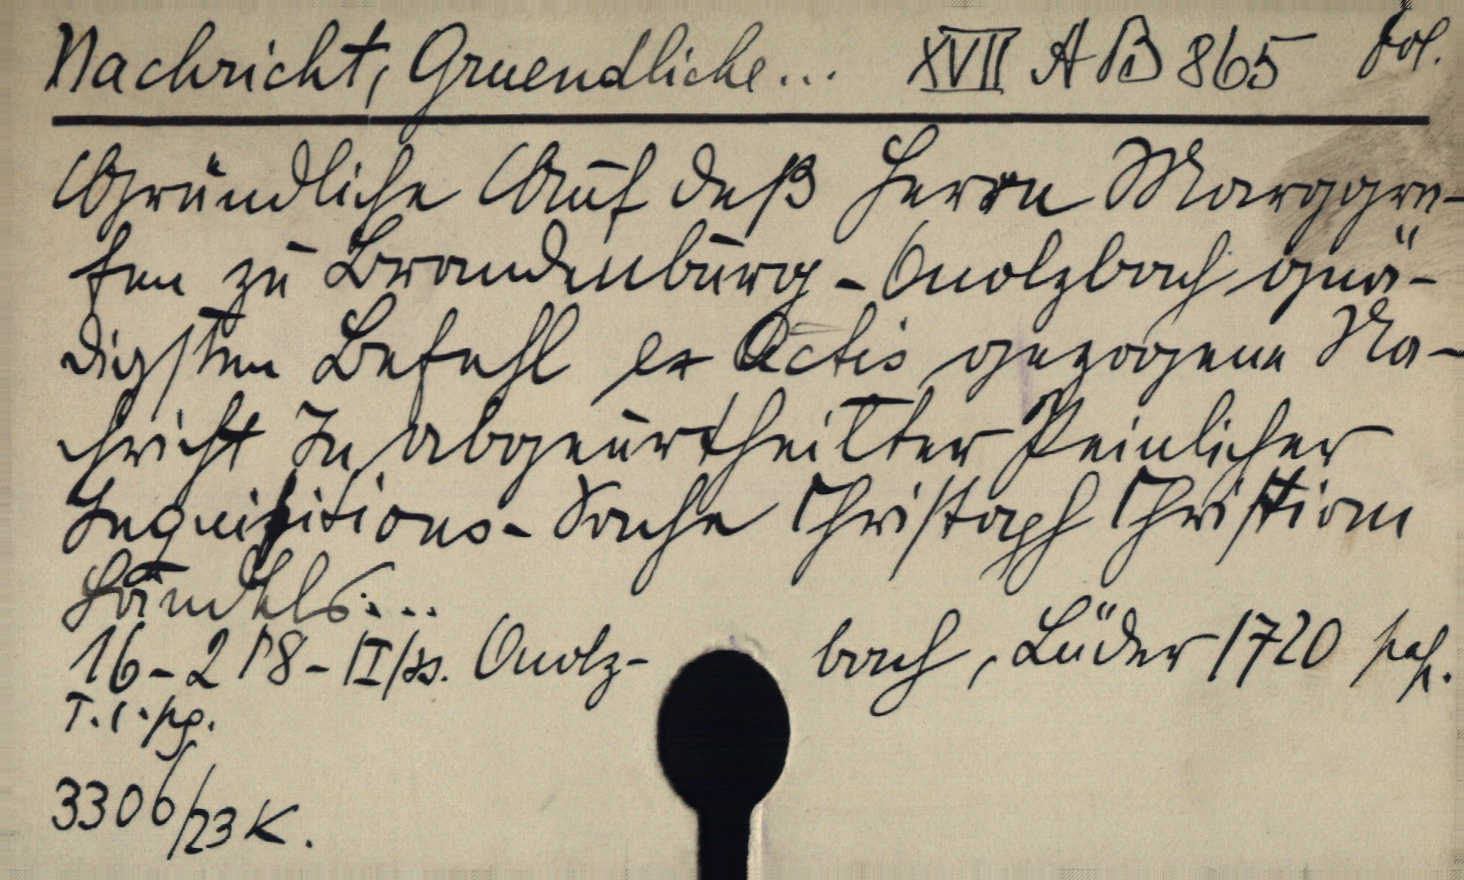 Nachricht, Gruendliche... XVII AB 865 fol.
Gründliche Auf deß Herrn Marggra-
fen zu Brandenburg-Onolzbach gnä-
digsten Befehl ex Actis gezogene Na-
chricht In abgeurtheilter Peinlicher
Inquisitions-Sache Christoph Christian
Händels...
16-218-II/ss. Onolz-bach, Lüder 1720
T. 1. pg.
3306/23 K.